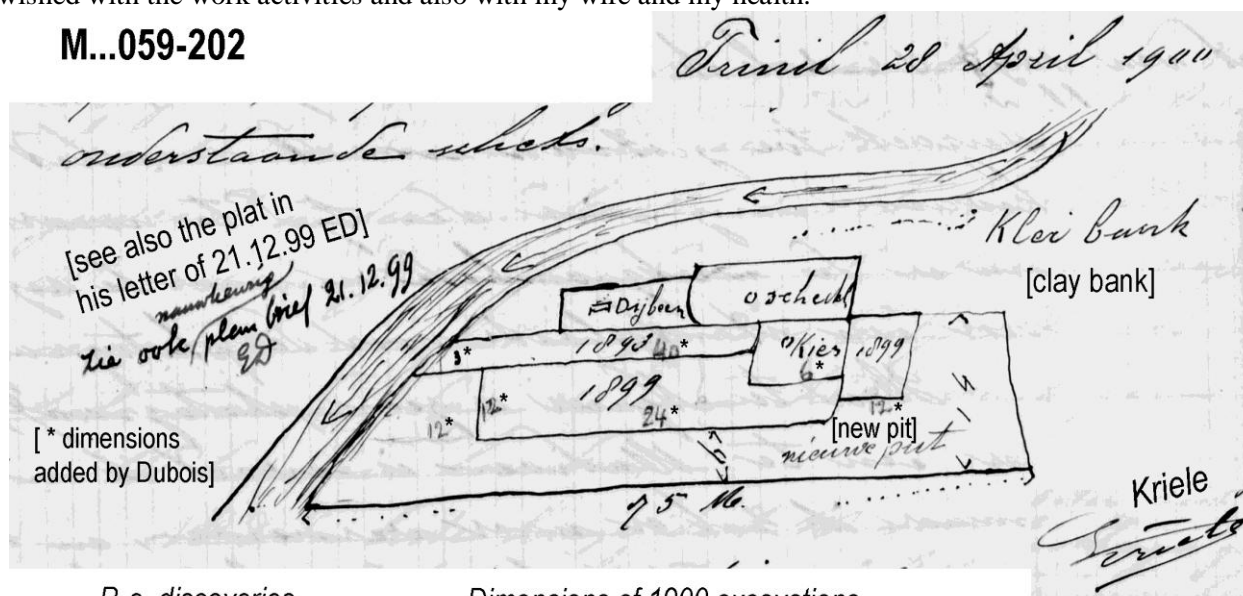 wished with the work activities and also with my wife and my health.
M...059-202
Trinil 28 April 1900
onderstaande schets.
[see also the plat in
his letter of 21.12.99 ED]
nauwkeurig
zie ook plan brief 21.12.99
ED
Klei bank
[clay bank]
Dijbeen
o schedel
3*
1893 40*
o Kies
6*
1899
12*
12*
1899
24*
12*
[new pit]
nieuwe put
[ * dimensions
added by Dubois]
10
75 M.
Kriele
Kriele
P.e. discoveries
Dimensions of 1900 excavations